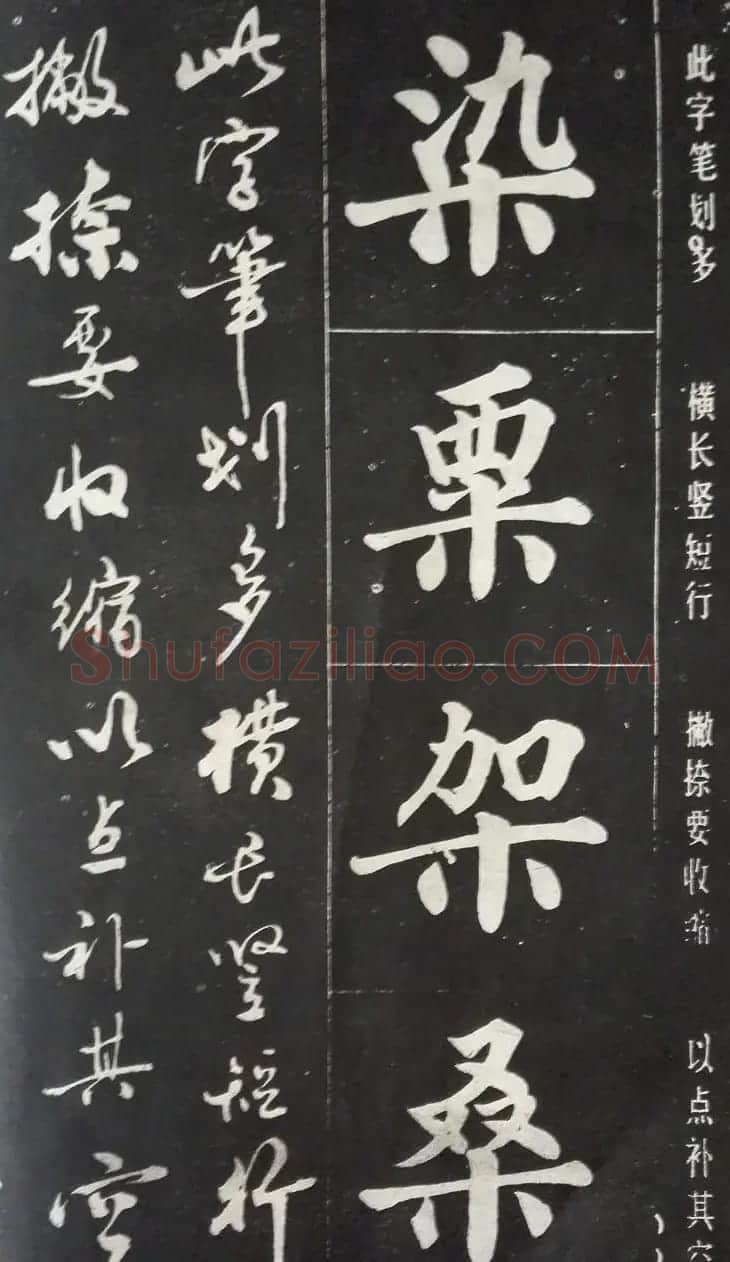 此字笔划多 横长竖短行 撇捺要收缩 以点补其
染
栗
架
桑
此字筆划多横长竖短行
撇捺要收缩以点补其空
Shufaziliao.COM